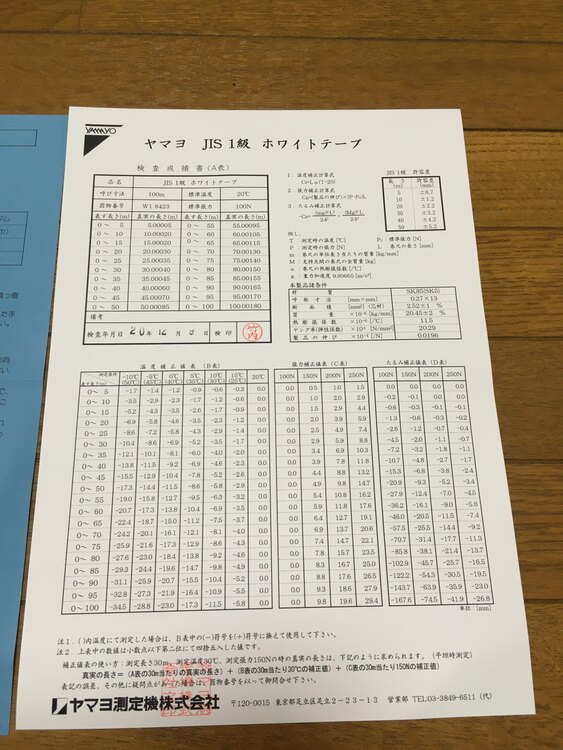 YAMAYO
ヤマヨ JIS 1級 ホワイトテープ
検査成績書(A表)
品名 JIS 1級 ホワイトテープ
呼び寸法 100m 標準温度 20℃
器物番号 W1 8423 標準張力 100N
表す長さ(m) 真実の長さ(m) 表す長さ(m) 真実の長さ(m)
0～ 5 5.00005 0～ 55 55.00095
0～ 10 10.00020 0～ 60 60.00105
0～ 15 15.00020 0～ 65 65.00115
0～ 20 20.00030 0～ 70 70.00120
0～ 25 25.00035 0～ 75 75.00140
0～ 30 30.00040 0～ 80 80.00150
0～ 35 35.00050 0～ 85 85.00155
0～ 40 40.00065 0～ 90 90.00160
0～ 45 45.00070 0～ 95 95.00170
0～ 50 50.00085 0～ 100 100.00180
備考
検査年月日 20年12月9日 検印 竹内
1. 温度補正計算式
2. 張力補正計算式
3. たるみ補正計算式
但し、
T : 測定時の温度[℃] Ps : 標準張力[N]
P : 測定時の張力[N] L : 巻尺の長さ[m]
m : 巻尺の単位長さ当たりの質量[kg/mm]
M : 支持点間の巻尺の全質量[kg/mm]
α : 巻尺の熱膨張係数[/℃]
g : 重力加速度 9.80665[m/s²]
JIS 1級 許容差
長さ(m) 許容差(mm)
5 ±0.7
10 ±1.2
20 ±2.2
30 ±3.2
40 ±4.2
50 ±5.2
本製品諸条件
材質 SK85(SK5)
呼称寸法 [mm×mm] 0.27×13
断面積 [mm²](芯材) 2.52±1 %
質量 ×10⁻⁶[kg/mm] 20.45±2 %
熱膨張係数 ×10⁻⁶[/℃] 11.5
ヤング率(弾性係数) ×10⁴[N/mm²] 20.29
製品の伸び ×10⁻⁶[/N] 0.0196
温度補正値表(B表)
測定条件 表す長さ(m) -10℃(50℃) -5℃(45℃) 0℃(40℃) 5℃(35℃) 10℃(30℃) 15℃(25℃) 20℃
0～ 5 -1.7 -1.4 -1.2 -0.9 -0.6 -0.3 0.0
0～ 10 -3.5 -2.9 -2.3 -1.7 -1.2 -0.6 0.0
0～ 15 -5.2 -4.3 -3.5 -2.6 -1.7 -0.9 0.0
0～ 20 -6.9 -5.8 -4.6 -3.5 -2.3 -1.2 0.0
0～ 25 -8.6 -7.2 -5.8 -4.3 -2.9 -1.4 0.0
0～ 30 -10.4 -8.6 -6.9 -5.2 -3.5 -1.7 0.0
0～ 35 -12.1 -10.1 -8.1 -6.0 -4.0 -2.0 0.0
0～ 40 -13.8 -11.5 -9.2 -6.9 -4.6 -2.3 0.0
0～ 45 -15.5 -12.9 -10.4 -7.8 -5.2 -2.6 0.0
0～ 50 -17.3 -14.4 -11.5 -8.6 -5.8 -2.9 0.0
0～ 55 -19.0 -15.8 -12.7 -9.5 -6.3 -3.2 0.0
0～ 60 -20.7 -17.3 -13.8 -10.4 -6.9 -3.5 0.0
0～ 65 -22.4 -18.7 -15.0 -11.2 -7.5 -3.7 0.0
0～ 70 -24.2 -20.1 -16.1 -12.1 -8.1 -4.0 0.0
0～ 75 -25.9 -21.6 -17.3 -12.9 -8.6 -4.3 0.0
0～ 80 -27.6 -23.0 -18.4 -13.8 -9.2 -4.6 0.0
0～ 85 -29.3 -24.4 -19.6 -14.7 -9.8 -4.9 0.0
0～ 90 -31.1 -25.9 -20.7 -15.5 -10.4 -5.2 0.0
0～ 95 -32.8 -27.3 -21.9 -16.4 -10.9 -5.5 0.0
0～ 100 -34.5 -28.8 -23.0 -17.3 -11.5 -5.8 0.0
張力補正値表(C表)
100N 150N 200N 250N
0.0 0.5 1.0 1.5
0.0 1.0 2.0 2.9
0.0 1.5 2.9 4.4
0.0 2.0 3.9 5.9
0.0 2.5 4.9 7.4
0.0 2.9 5.9 8.8
0.0 3.4 6.9 10.3
0.0 3.9 7.8 11.8
0.0 4.4 8.8 13.2
0.0 4.9 9.8 14.7
0.0 5.4 10.8 16.2
0.0 5.9 11.8 17.6
0.0 6.4 12.7 19.1
0.0 6.9 13.7 20.6
0.0 7.4 14.7 22.1
0.0 7.8 15.7 23.5
0.0 8.3 16.7 25.0
0.0 8.8 17.6 26.5
0.0 9.3 18.6 27.9
0.0 9.8 19.6 29.4
たるみ補正値表(D表)
100N 150N 200N 250N
0.0 0.0 0.0 0.0
-0.2 -0.1 0.0 0.0
-0.6 -0.3 -0.1 -0.1
-1.3 -0.6 -0.3 -0.2
-4.5 -2.0 -1.1 -0.7
-7.2 -3.2 -1.8 -1.1
-10.7 -4.8 -2.7 -1.7
-15.3 -6.8 -3.8 -2.4
-20.9 -9.3 -5.2 -3.4
-27.9 -12.4 -7.0 -4.5
-36.2 -16.1 -9.0 -5.8
-46.0 -20.5 -11.5 -7.4
-57.5 -25.5 -14.4 -9.2
-70.7 -31.4 -17.7 -11.3
-85.8 -38.1 -21.4 -13.7
-102.9 -45.7 -25.7 -16.5
-122.2 -54.3 -30.5 -19.5
-143.7 -63.9 -35.9 -23.0
-167.6 -74.5 -41.9 -26.8
単位:[mm]
注1. ( )内温度にて測定した場合は、B表中の(-)符号を(+)符号に換えて使用して下さい。
注2. 上表中の数値は小数点以下第二位にて四捨五入した値です。
補正値表の使い方:測定長さ30m、測定温度30℃、測定張力150Nの時の真実の長さは、下記のように求められます。(平坦時測定)
真実の長さ=(A表の30m当たりの真実の長さ)+(B表の30m当たり30℃の補正値)+(C表の30m当たり150Nの補正値)
表記の誤差、その他に疑問点があった場合は、器物番号を以って御問合せ下さい。
ヤマヨ測定機株式会社 〒120-0015 東京都足立区足立2-23-13 営業部 TEL03-3849-6511(代)